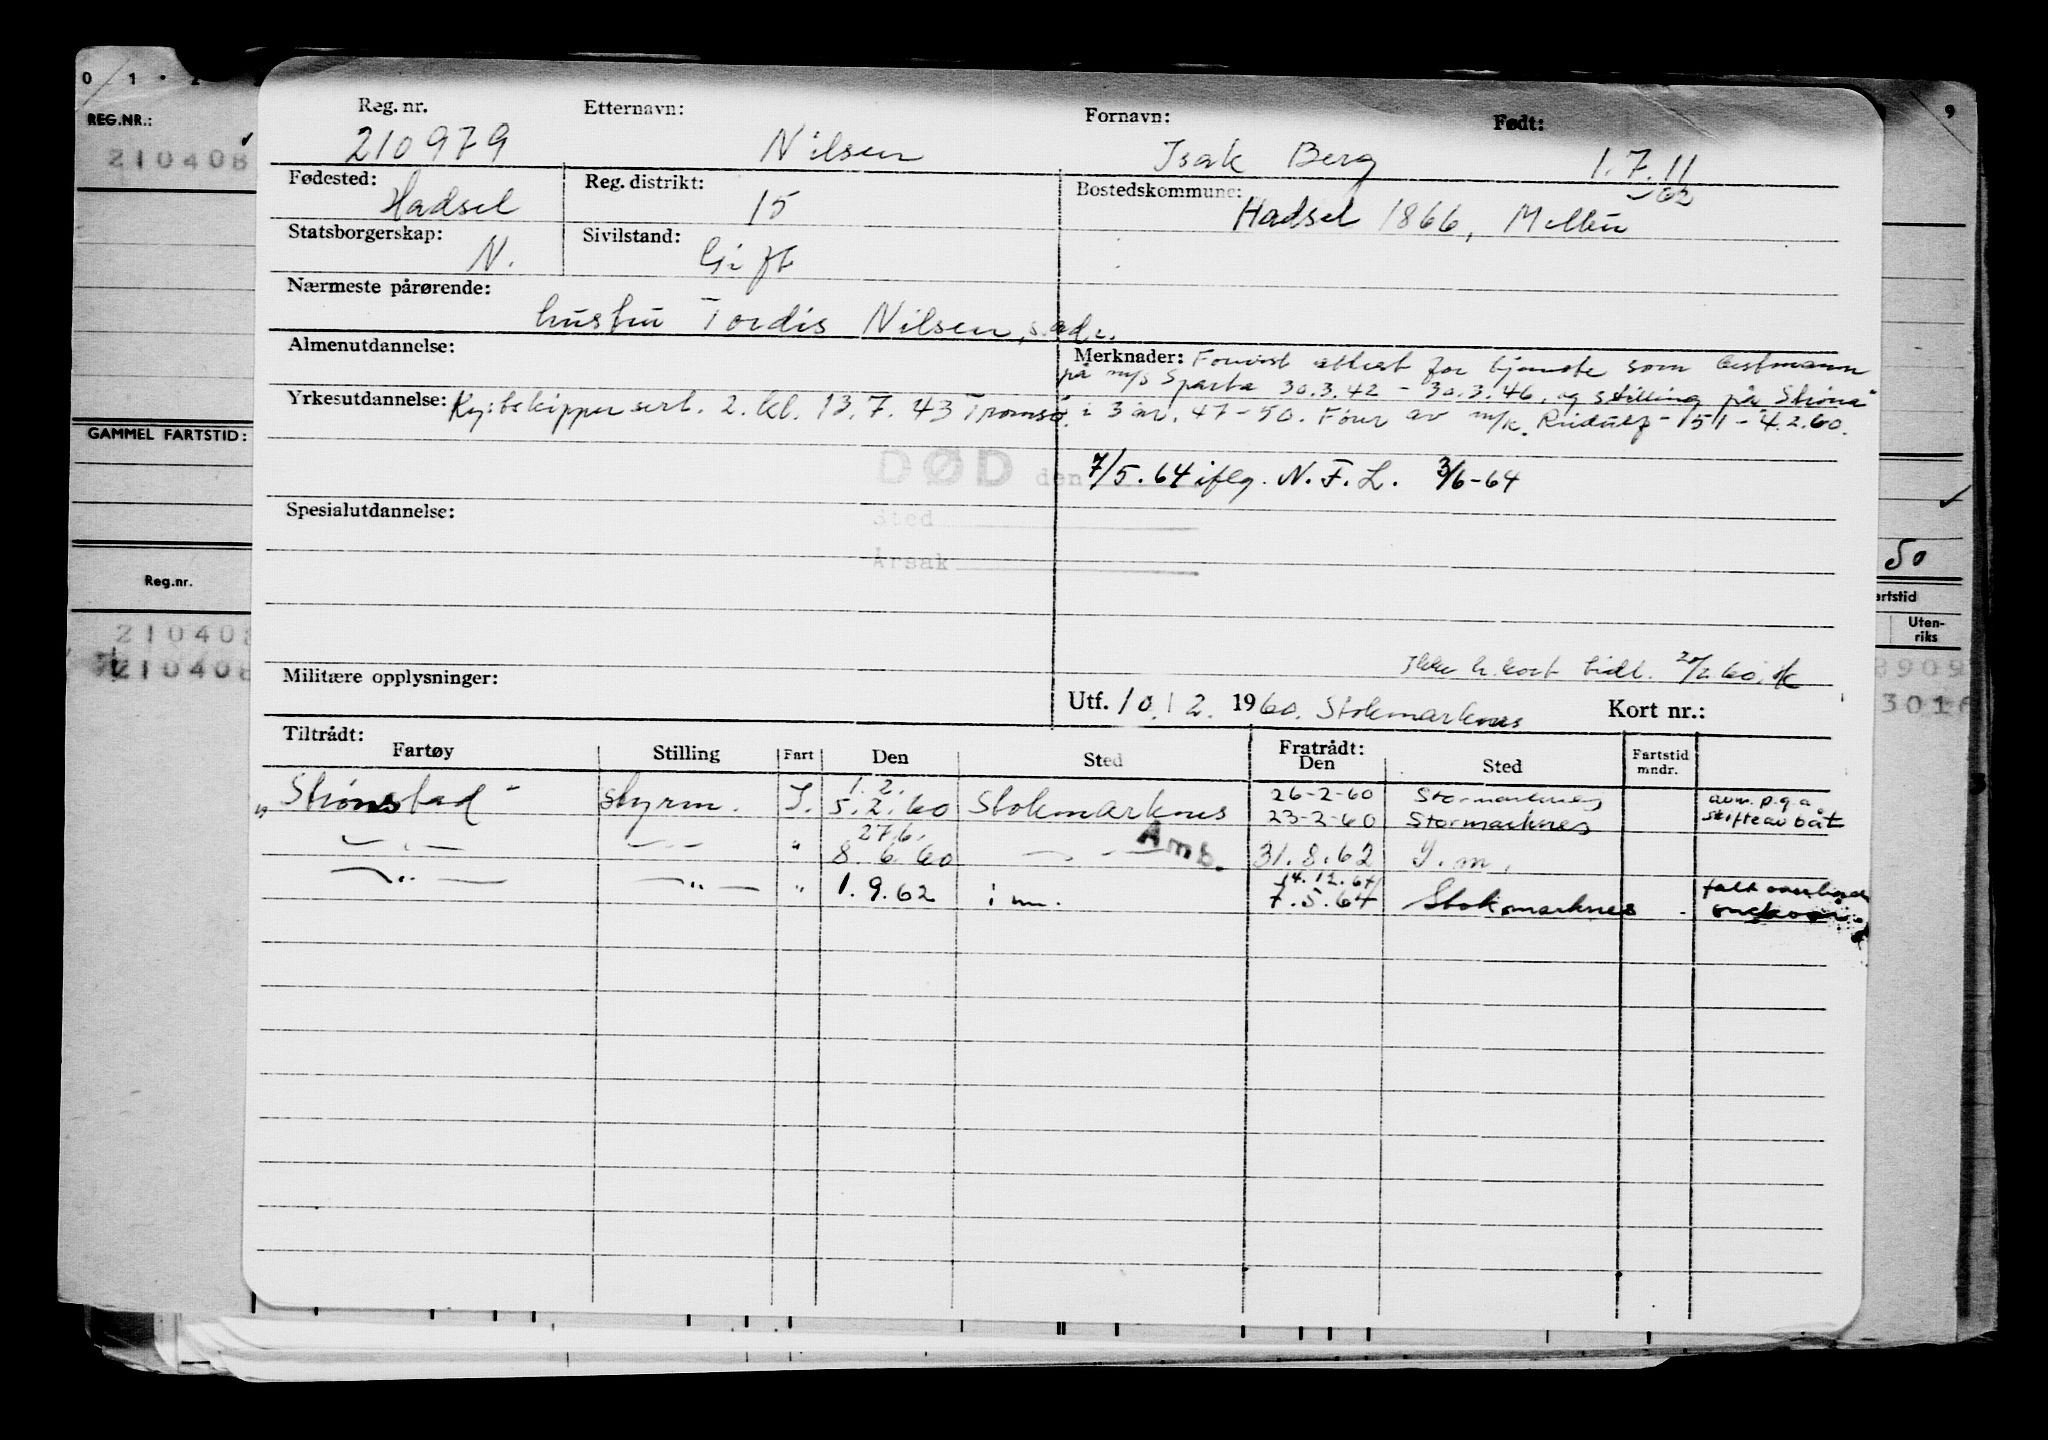 0 1 2
9
REG.NR.:
210408
Reg. nr. Etternavn: Fornavn: Født:
210979 Nilsen Isak Berg 1.7.11
Fødested: Reg. distrikt: Bostedskommune:
Hadsel 15 Hadsel 1866, Melbu
Statsborgerskap: Sivilstand:
N. Gift
Nærmeste pårørende:
hustru Tordis Nilsen, s.adr.
Almenutdannelse: Merknader: Forevist attest for tjeneste som Bestmann
på m/s Sparta 30.3.42 - 30.3.46, og stilling på "Strøna"
Yrkesutdannelse: Kystskippersert. 2. kl. 13.7.43 Tromsø. i 3 år. 47-50. Fører av m/k. 151 - 4.2.60.
GAMMEL FARTSTID:
DØD den 7/5.64 iflg. N.F.L. 3/6-64
Spesialutdannelse: Sted
Årsak
50
Reg.nr.
artstid
Uten-
riks
210408
210408
8909
Ikke h.kort tidl.
Militære opplysninger:
Utf. 10.12. 1960. Stokmarknes Kort nr.:
Tiltrådt: Fratrådt:
Fartøy Stilling Fart Den Sted Den Sted Fartstid mndr.
1.2. 26-2-60 Stormarknes avm. p.g.a.
"Strønstad" styrm. I. 5.2.60 Stokmarknes 23-2-60 Stormarknes skifte av båt
27.6.
— " — — " — " 8.6.60 — " — Amb. 31.8.62 I.m.
14.12.64 falt overbord
— " — — " — " 1.9.62 i m. 7.5.64 Stokmarknes